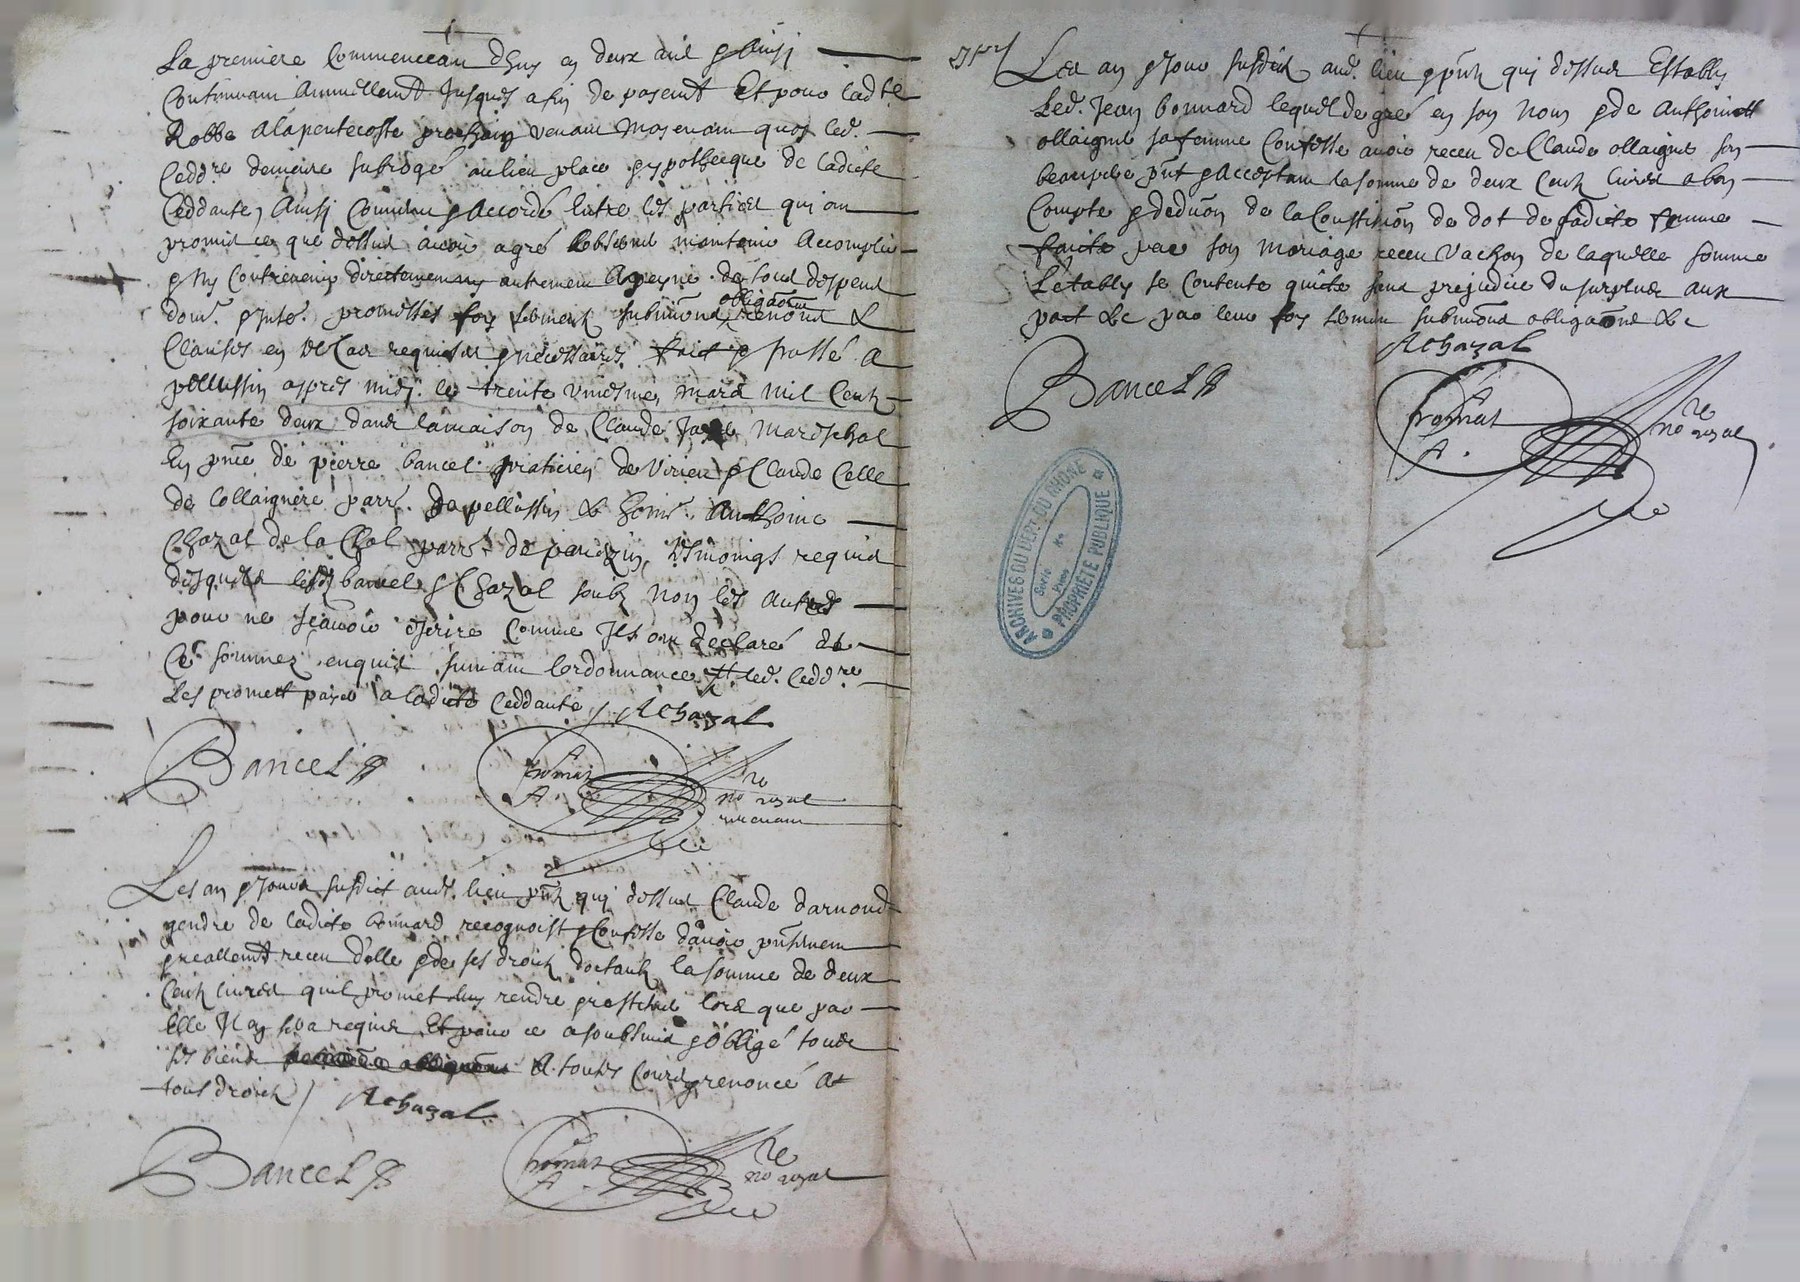 La premiere Commencean dhuy en deux ans & ainsi
Continuam Annuellemt Jusques afin de payemt Et pour ladte
Robbe a la pentecoste prochain venam moyenam quoy led.
Cedd.re demeure subrogé au lieu place & ypotheque de ladicte
Ceddante, Ainsi Convenu & accordé Entre les parties qui on
promis ce que dessus avoir a gré Observer maintenir Accomplir
& ny Contrevenir directemen ny autremen A peyne de tous despens
dom. & Intr. promesses foy sermentz submions, obligaons renons &
Clauses en tel Cas requises & necessaires. faict & passé a
pellussin apres midy le trente vniesme mars mil six Centz
soixante deux dans la maison de Claude mareschal
En pnce de pierre bancel praticien de Virieu & Claude Celle
de Collaignere parr. de pellussin & honn. Anthoine
Chazal de la Chal parr. de tesmoings requis
desquels lesds bancel & Chazal soubz non les autres
pour ne scavoir escrire Comme Ils on declaré de
Ce sommez enquis suivam lordonnance led. Cedd.re
Les promett payer a ladicte Ceddante / AChazal
Bancel
no royal
recevam
Les an & Jour susdict aud. lieu pntz qui dessus Claude darnoud
gendre de ladicte bonnard recognoist & Confesse davoir
preallemt receu delle & de ses droictz la somme de deux
Centz livres quil promet luy rendre & restituer lors que par
Elle Il en sera requis Et pour ce a soubsmis & obligé tous
ses biens A toutes Cours & renoncé A
tous droictz / AChazal
Bancel
no royal
Les an & Jour susdict aud. lieu & pntz qui dessus Estably
Led. Jean bonnard lequel de gré en son nom & de Anthoinette
ollaigne sa femme Confesse avoir receu de Claude ollaigne son
beaupere pnt & acceptam la somme de deux Centz livres a bon
Compte & deduon de la Constituon de dot de sadicte femme
faicte par son mariage receu Vachon de laquelle somme
Lestably se Contente quitte sans prejudice du surplus aux
part &c par leur foy sermen submions obligaons &c
AChazal
Bancel
no royal
ARCHIVES DU DEPT DU RHONE
PROPRIETE PUBLIQUE
Serie